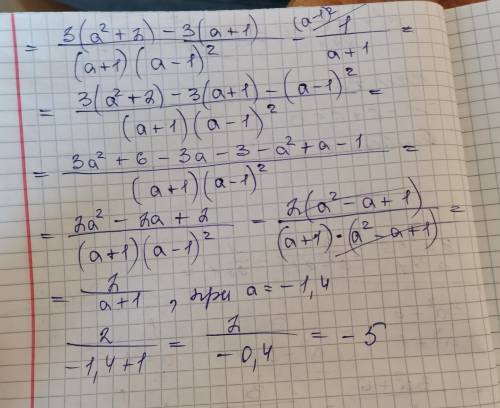 = \frac{3(a²+2) - 3(a+1)}{(a+1)(a-1)²} - \frac{(a-1)² 1}{a+1} =
= \frac{3(a²+2) - 3(a+1) - (a-1)²}{(a+1)(a-1)²} =
= \frac{3a² + 6 - 3a - 3 - a² + a - 1}{(a+1)(a-1)²} =
= \frac{2a² - 2a + 2}{(a+1)(a-1)²} = \frac{2(a² - a + 1)}{(a+1)·(a² - a + 1)} =
= \frac{2}{a+1}, при a = -1,4
\frac{2}{-1,4+1} = \frac{2}{-0,4} = -5